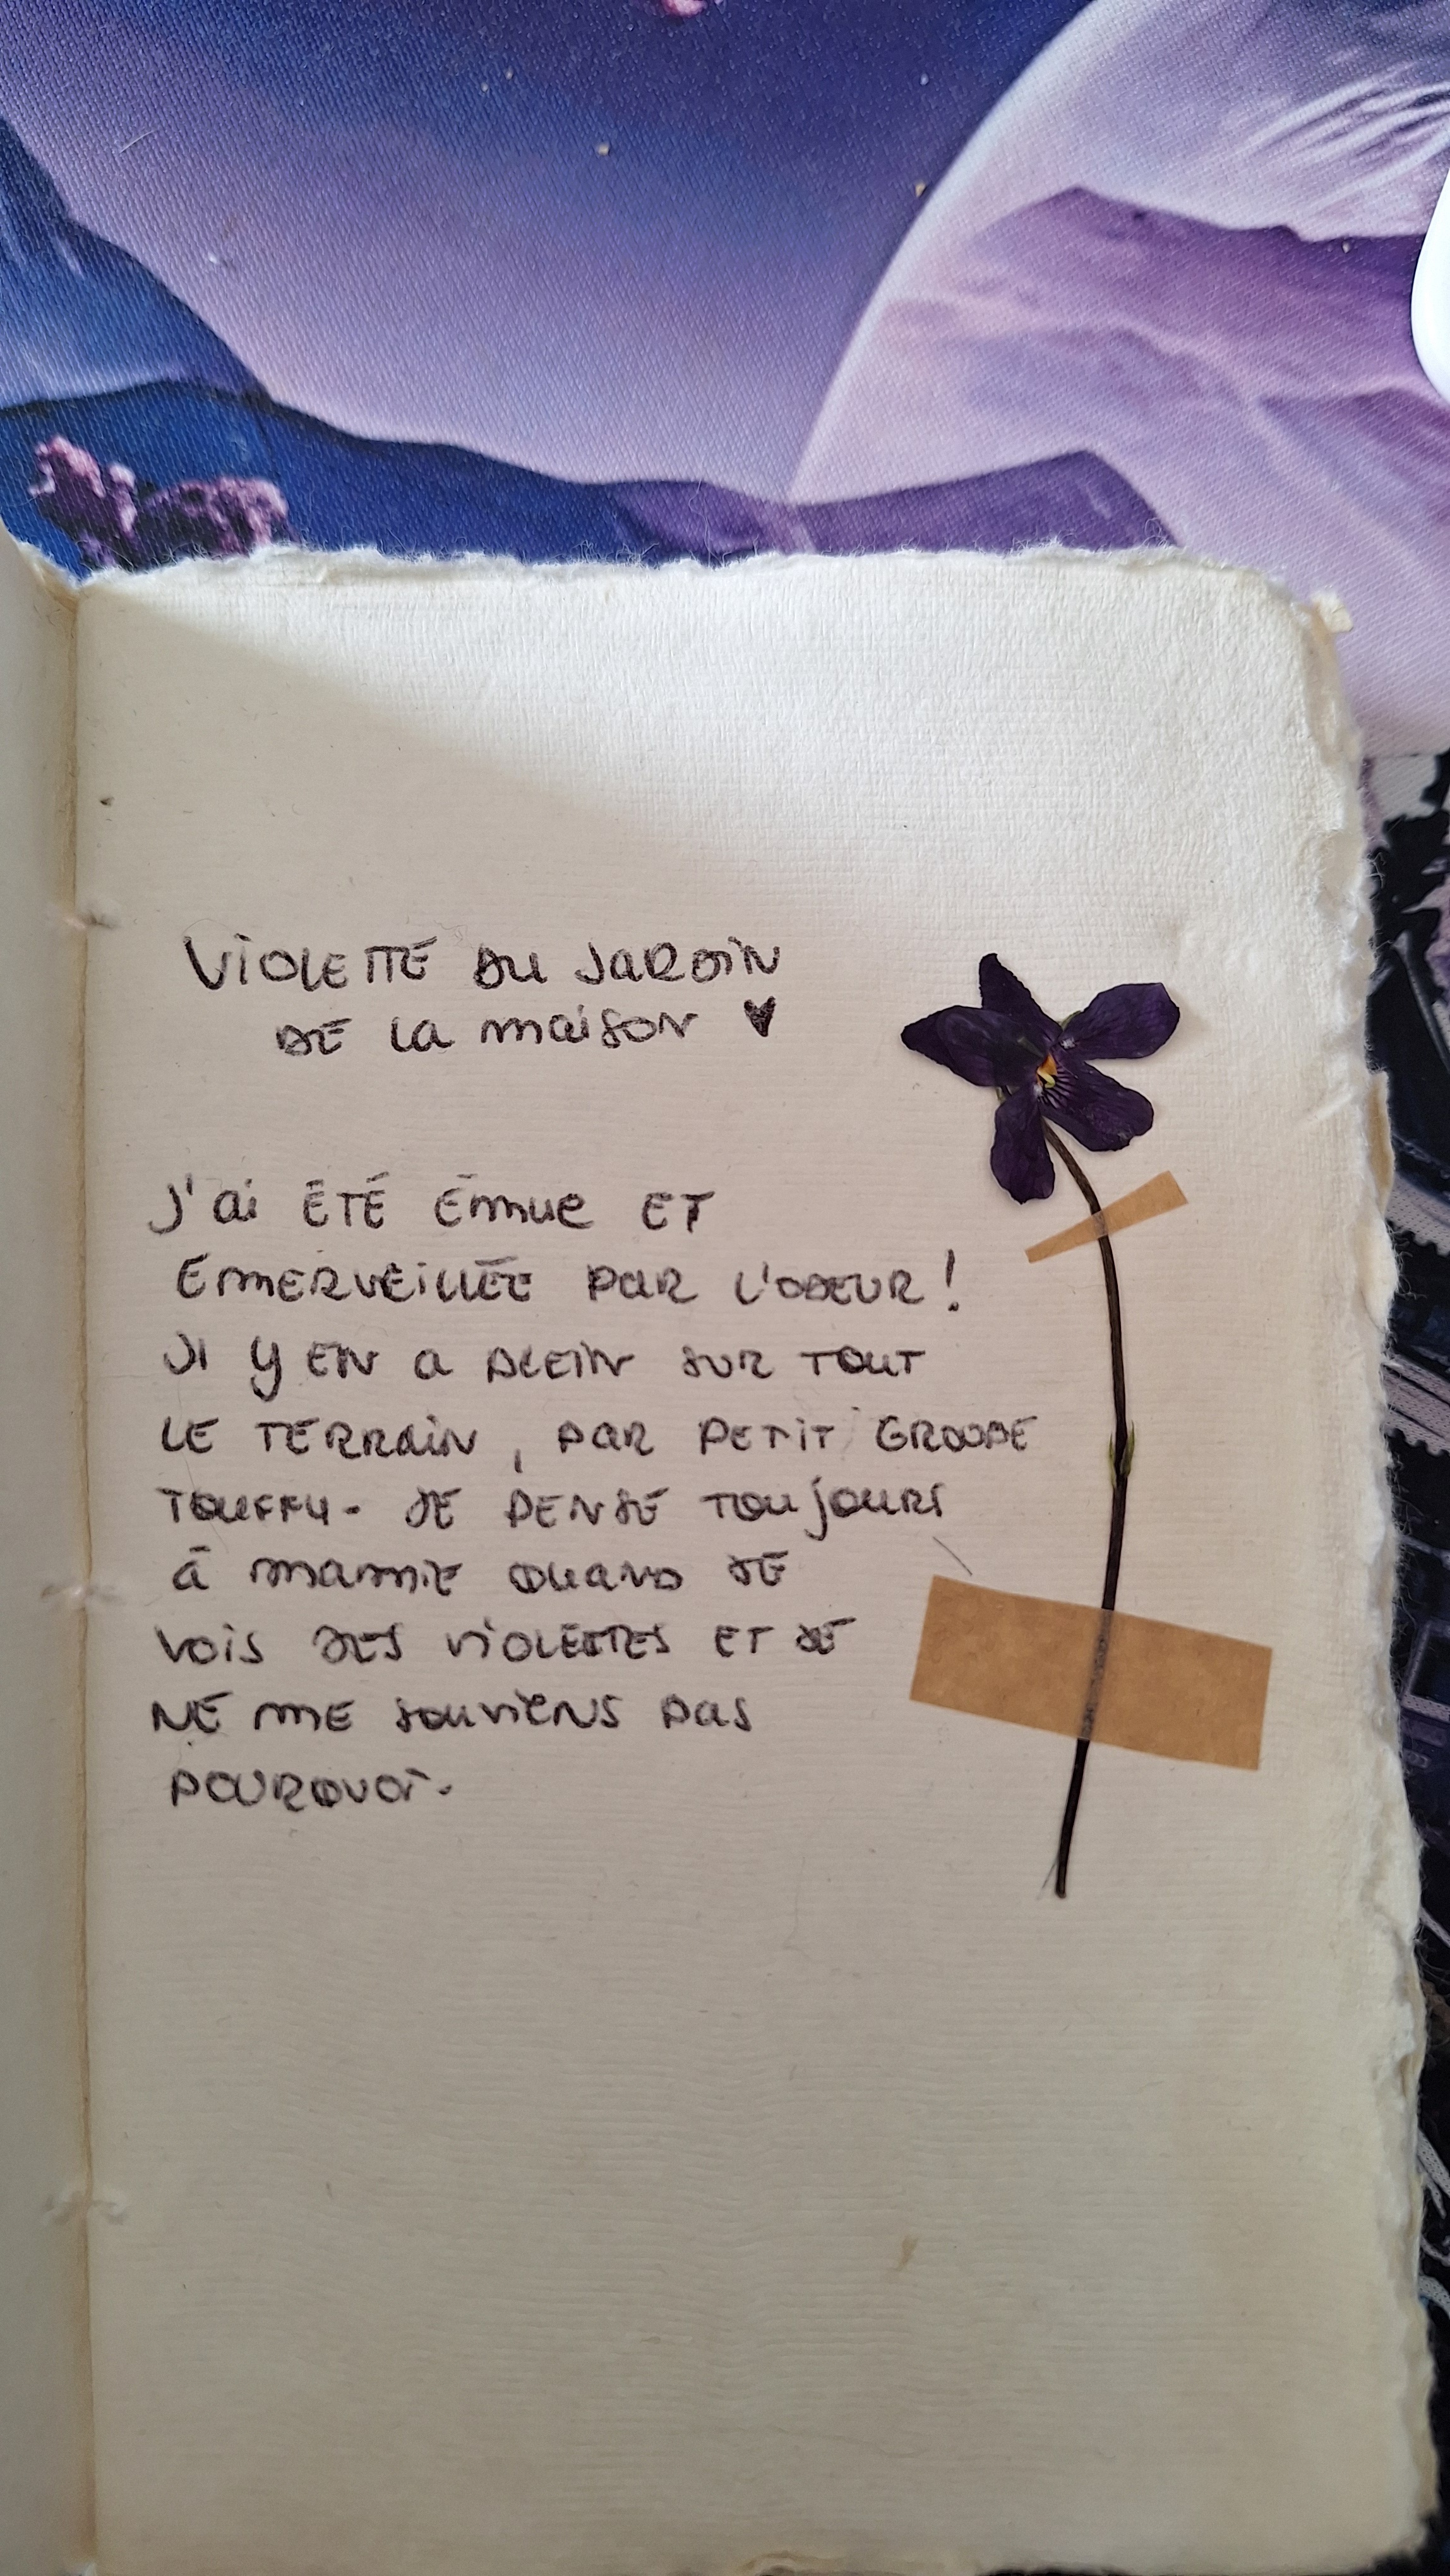 Violette du jardin
de la maison ♥
J'ai été émue et
émerveillée par l'odeur !
Il y en a plein sur tout
le terrain, par petit groupe
touffu. Je pense toujours
à mamie quand je
vois des violettes et je
ne me souviens pas
pourquoi.